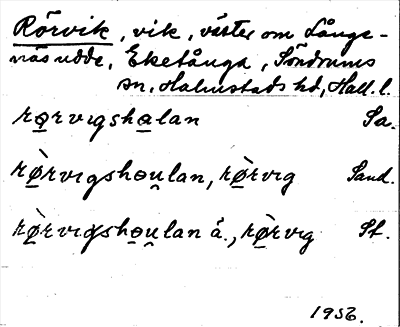 Rörvik, vik, väster om Långe-
näsudde, Eketånga, Söndrums
sn, Halmstads hd, Hall. l.
rørvigshalan Sa.
rø̀rvigshoulan, rø̀rvig Sand.
rø̀rvigshoulan å., rø̀rvig St.
1956.